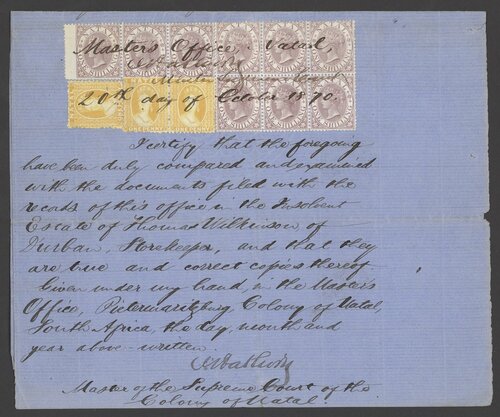 Masters Office, Natal,
20th day of October 1870.
ONE SHILLING
NATAL
ONE PENNY
I certify that the foregoing
have been duly compared and examined
with the documents filed with the
records of this office in the Insolvent
Estate of Thomas Wilkinson of
Durban, Storekeeper, and that they
are true and correct copies thereof.
Given under my hand, in the Masters
Office, Pietermaritzburg, Colony of Natal,
South Africa, the day, month and
year above-written.
Master of the Supreme Court of the
Colony of Natal.